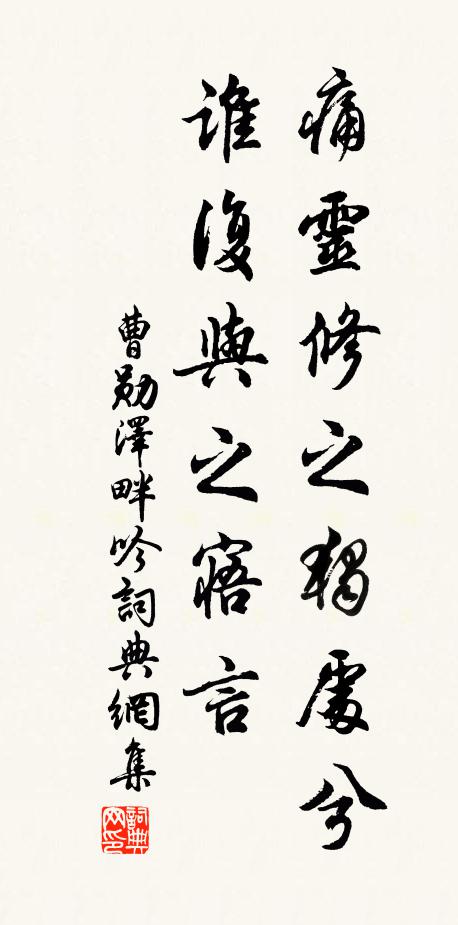 痛靈修之獨處兮
誰復與之寤言
曹勛澤畔吟詞典網集
詞典网印